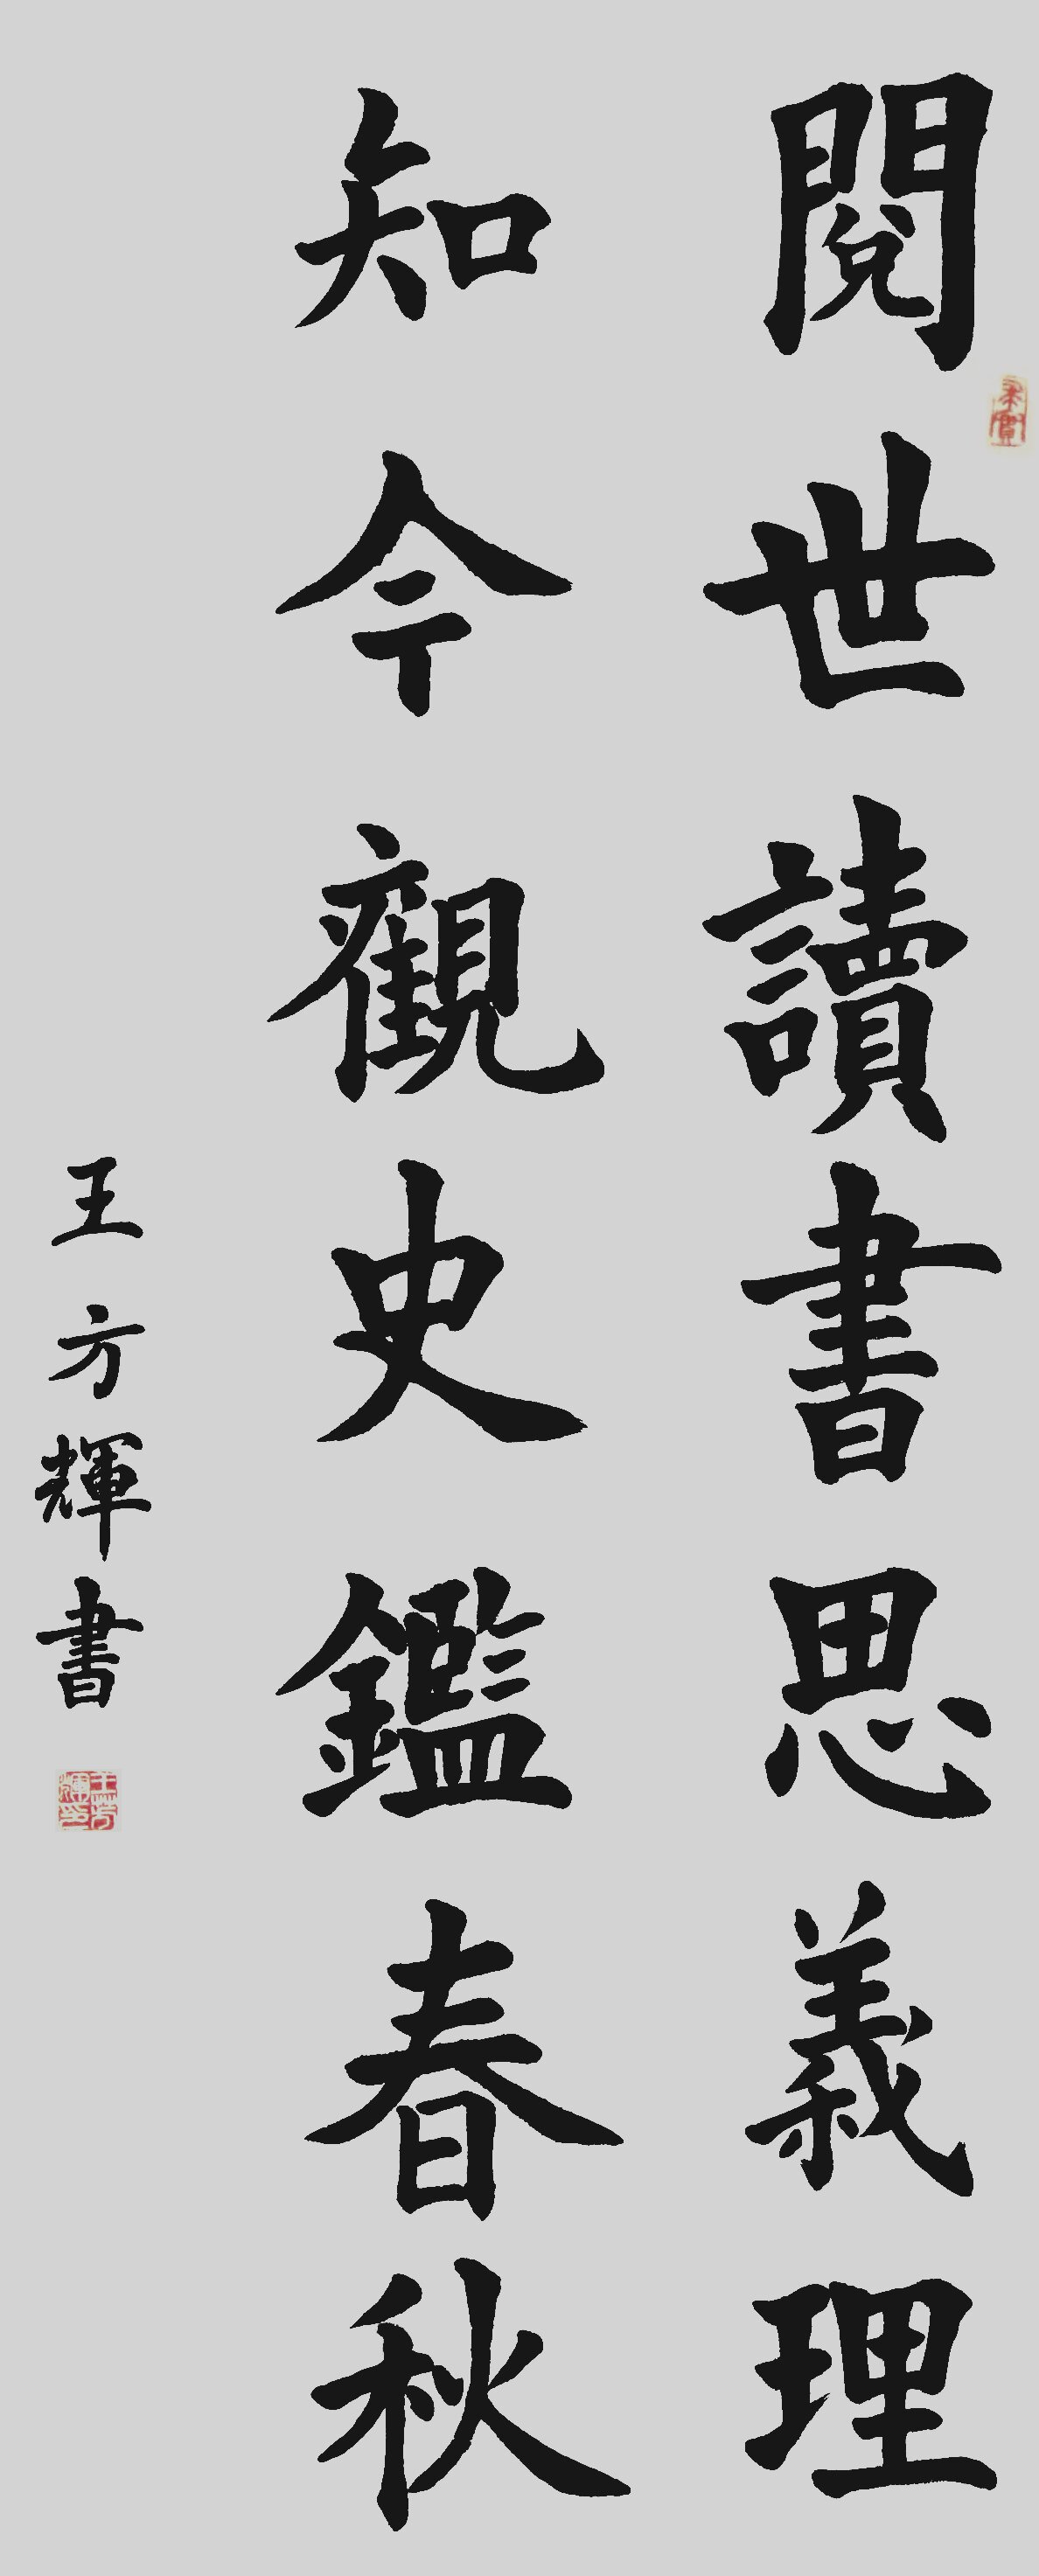 閲世讀書思義理
知今觀史鑑春秋
王方輝書